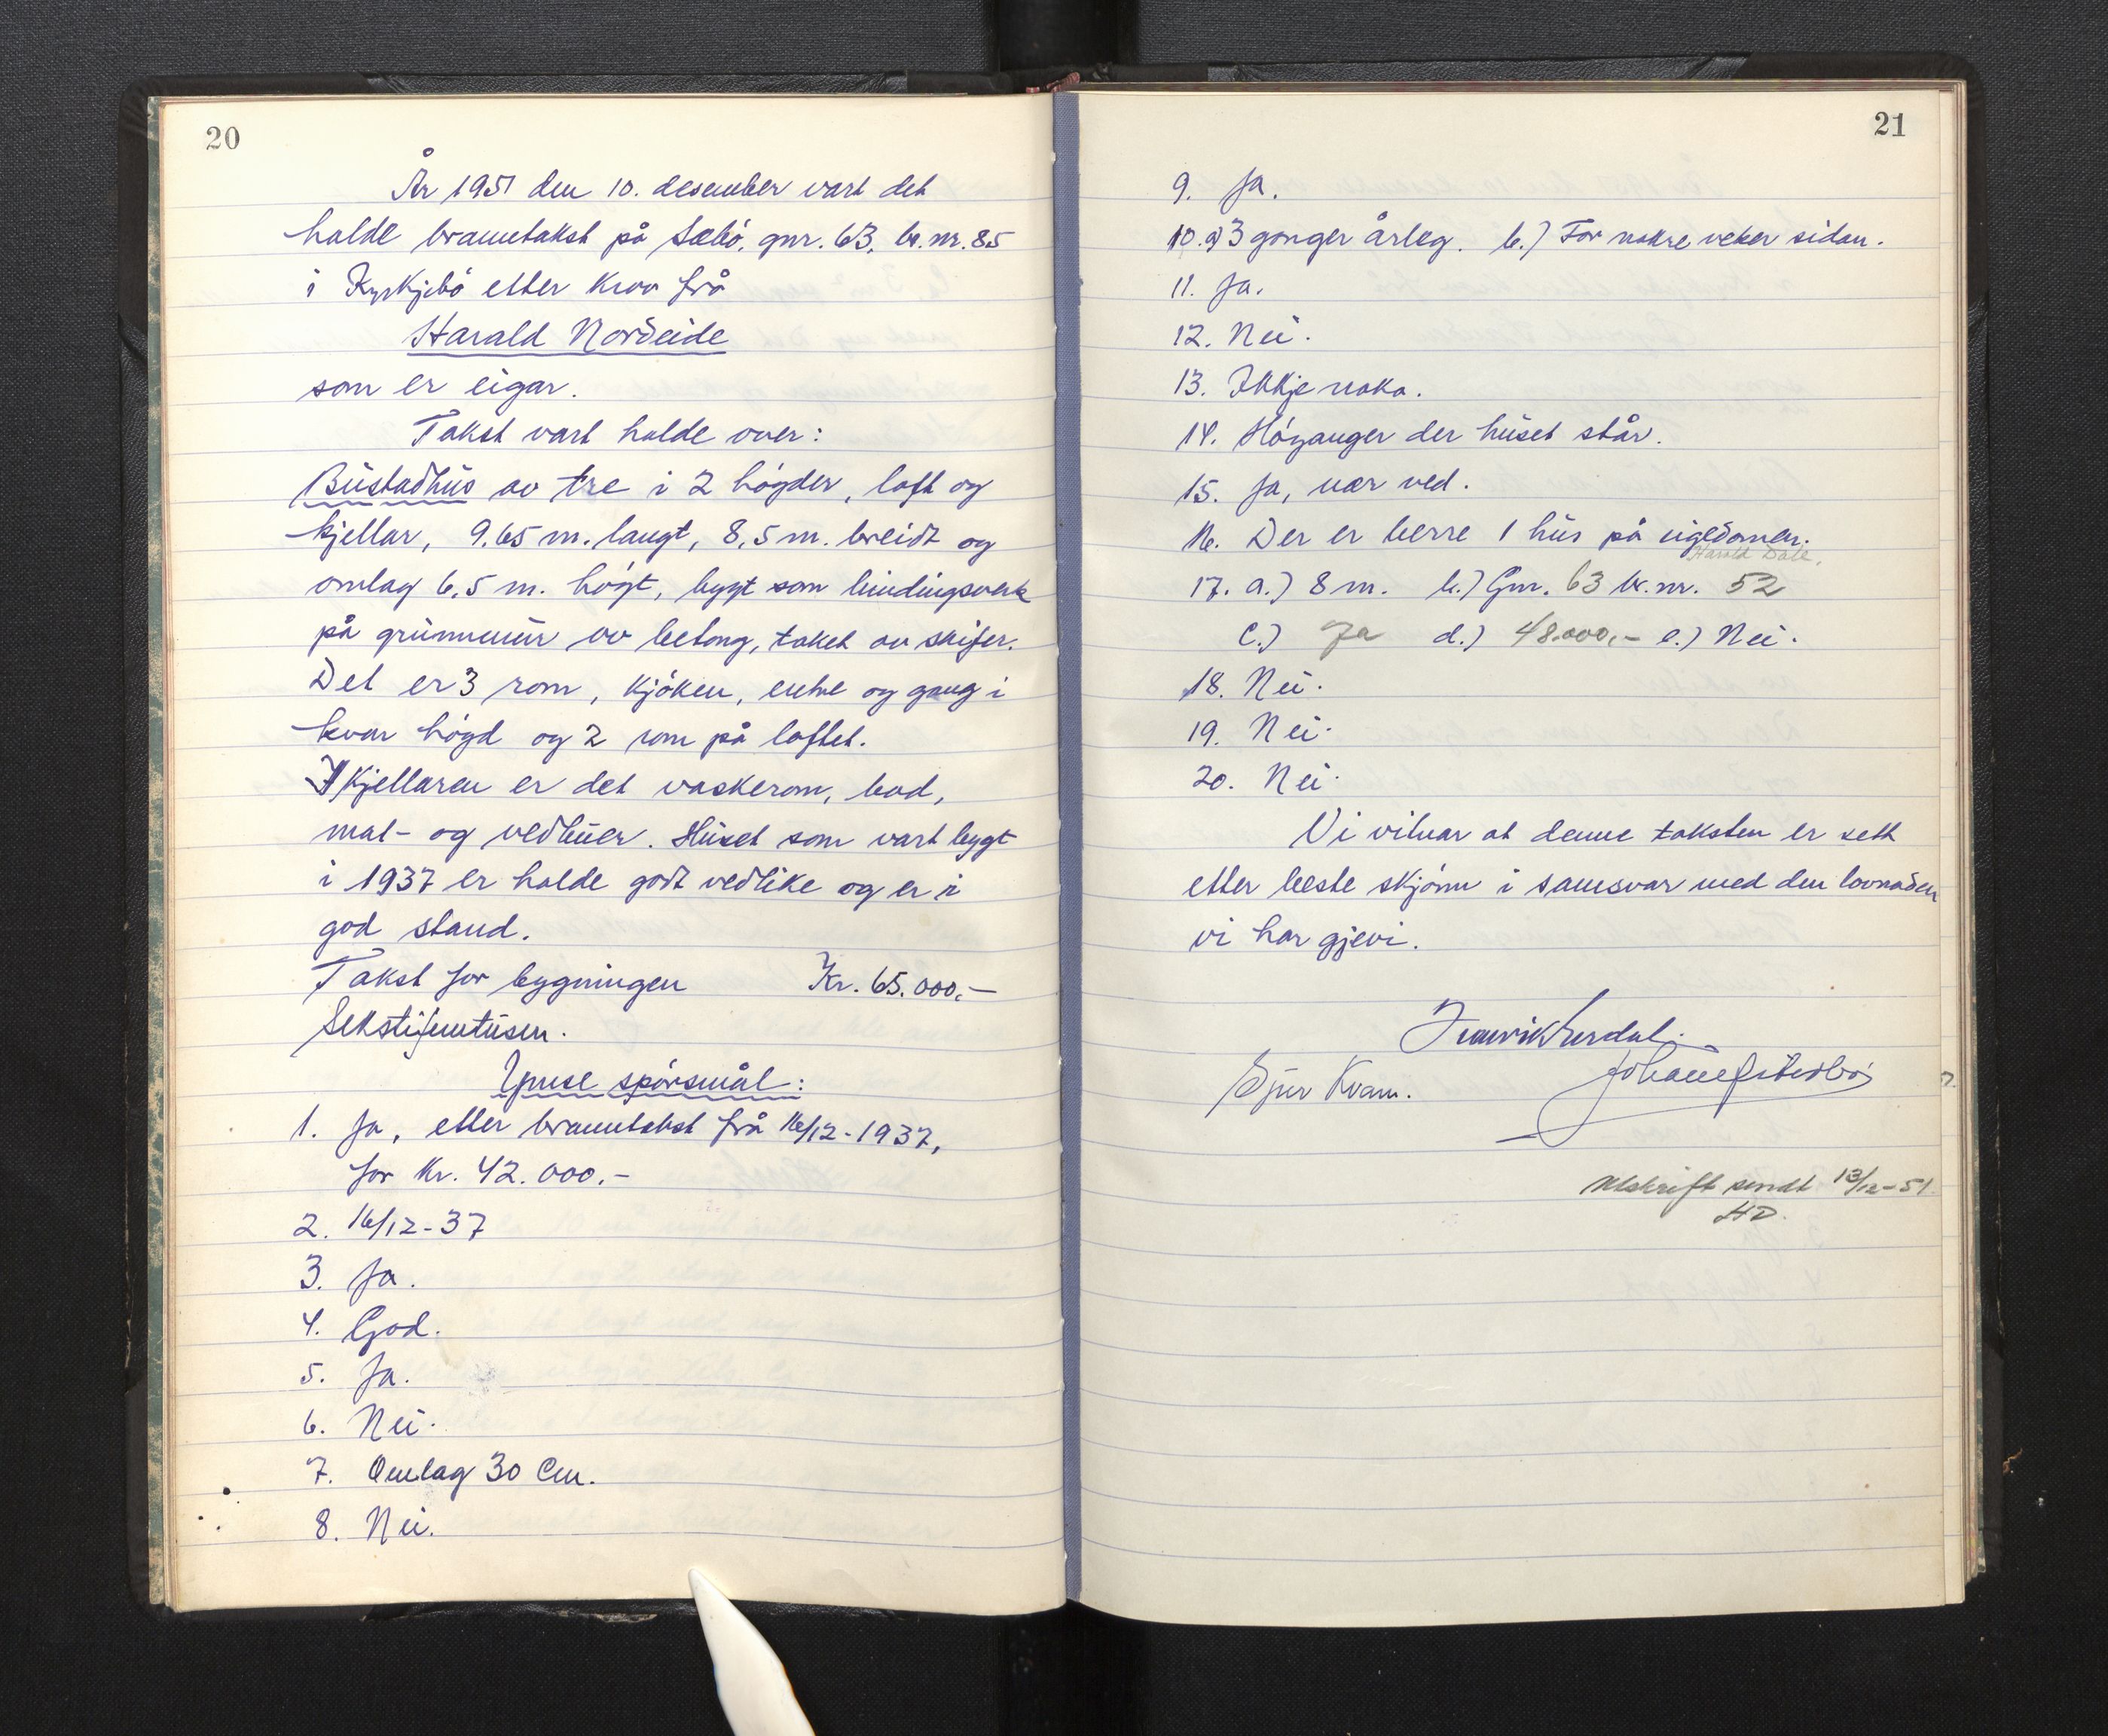 20
År 1951 den 10. desember vart det
halde branntakst på Sæbö, gnr. 63, br.nr. 85
i Kyrkjebö etter krav frå
Harald Nordeide
som er eigar.
Takst vart halde over:
Bustadhus av tre i 2 högder, loft og
kjellar, 9.65 m. langt, 8,5 m. breidt og
omlag 6,5 m. högt, bygt som bindingsverk
på grunnmur av betong, taket av skifer.
Det er 3 rom, kjöken, entre og gang i
kvar högd og 2 rom på loftet.
I kjellaren er det vaskerom, bad,
mat- og vedbuer. Huset som vart bygt
i 1937 er halde godt vedlike og er i
god stand.
Takst for bygningen Kr. 65.000,-
Sekstifemtusen.
Ymse spörsmål:
1. Ja, etter branntakst frå 16/12-1937,
for kr. 42.000.-
2. 16/12-37
3. Ja.
4. God.
5. Ja.
6. Nei.
7. Omlag 30 cm.
8. Nei.
21
9. Ja.
10.a) 3 gonger årleg. b.) For nokre veker sidan.
11. Ja.
12. Nei.
13. Ikkje noko.
14. Höyanger der huset står.
15. Ja, nær ved.
16. Der er berre 1 hus på eigedomen.
Harald Dale,
17. a.) 8 m. b.) Gnr. 63 br.nr. 52
c.) Ja d.) 48.000,- e.) Nei.
18. Nei.
19. Nei.
20. Nei.
Vi vitnar at denne taksten er sett
etter beste skjönn i samsvar med den lovnaden
vi har gjevi.
Sjur Kvam.
Utskrift sendt 13/12-51.
HD.